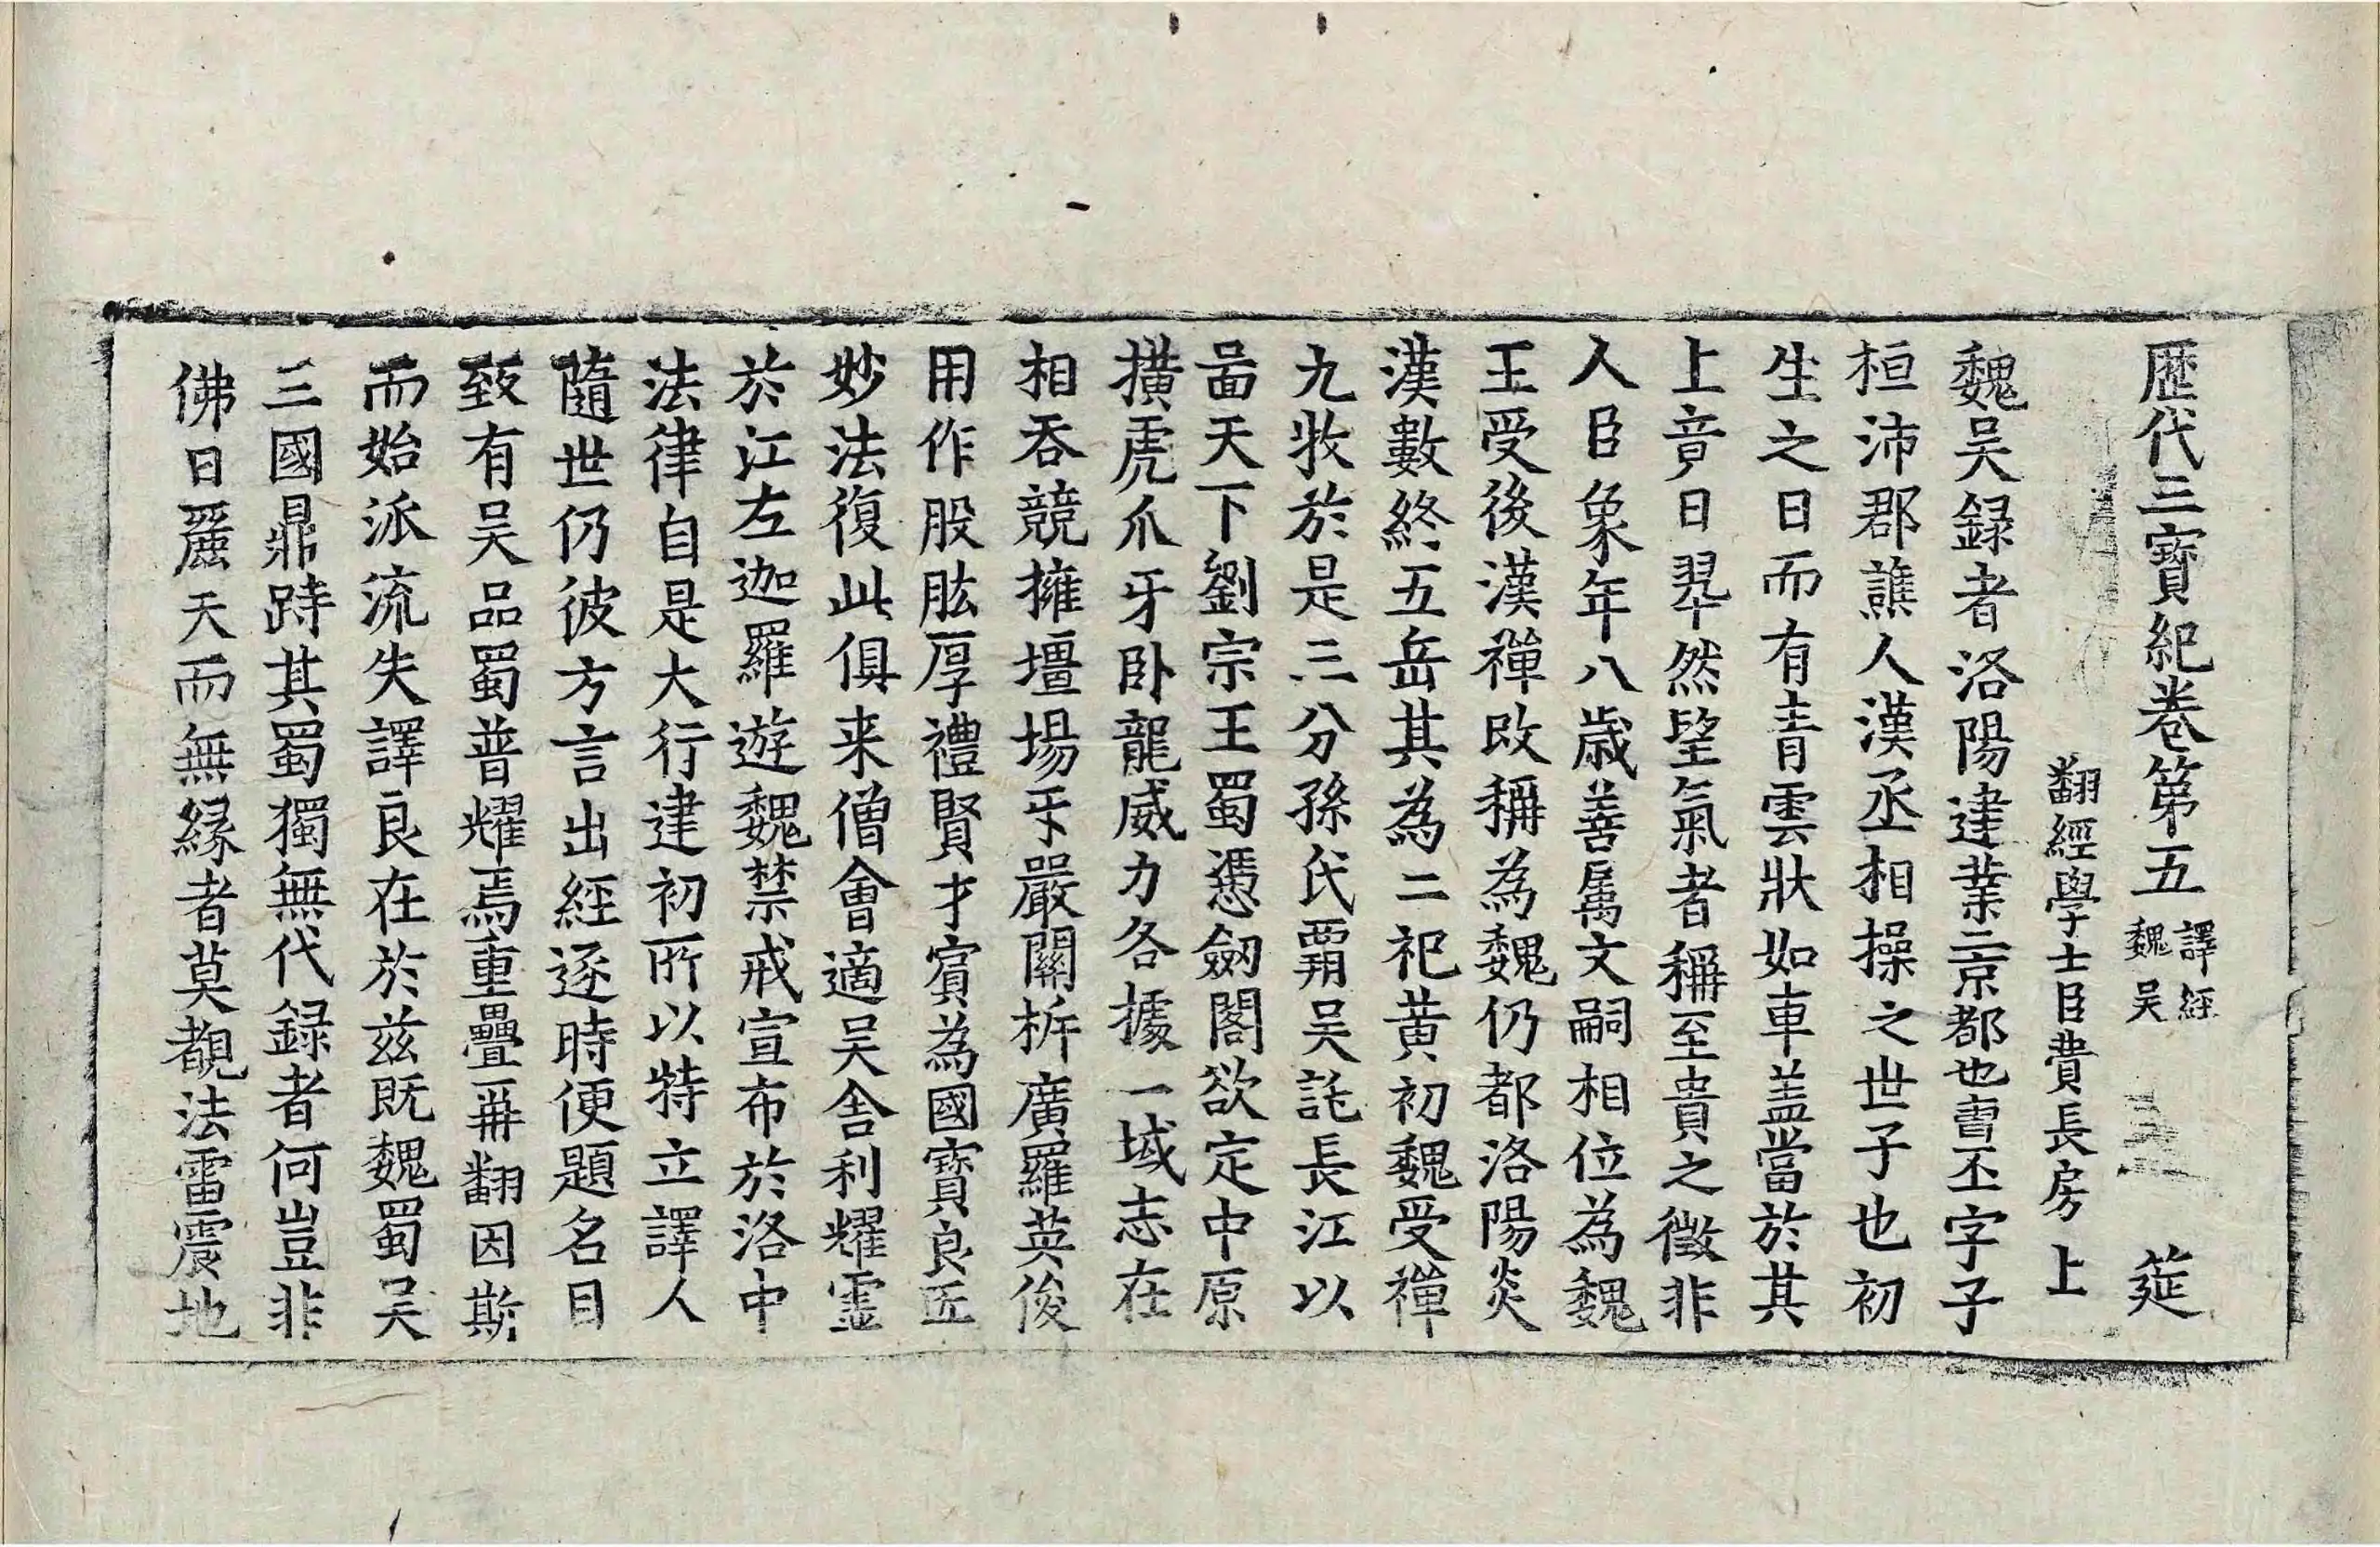 歴代三寶紀卷第五 譯經魏吳 筵
翻經學士臣費長房上
魏吳録者洛陽建業二京都也曺丕字子
桓沛郡譙人漢丞相操之世子也初
生之日而有青雲狀如車盖當於其
上竟日翠然望氣者稱至貴之徵非
人臣象年八歲善属文嗣相位為魏
王受後漢禪改稱為魏仍都洛陽炎
漢數終五岳其為二祀黄初魏受禪
九牧於是三分孫氏霸吳託長江以
啚天下劉宗王蜀憑劒閣欲定中原
擴虎爪牙卧龍威力各據一域志在
相吞競擁壃場牙嚴關柝廣羅英俊
用作股肱厚禮賢才賓為國寶良匠
妙法復此俱来僧會適吳舍利耀靈
於江左迦羅遊魏禁戒宣布於洛中
法律自是大行建初所以特立譯人
隨世仍彼方言出經逐時便題名目
致有吳品蜀普耀焉重疊再翻因斯
而始派流失譯良在於兹既魏蜀吳
三國鼎跱其蜀獨無代録者何豈非
佛日麗天而無縁者莫覩法雷震地